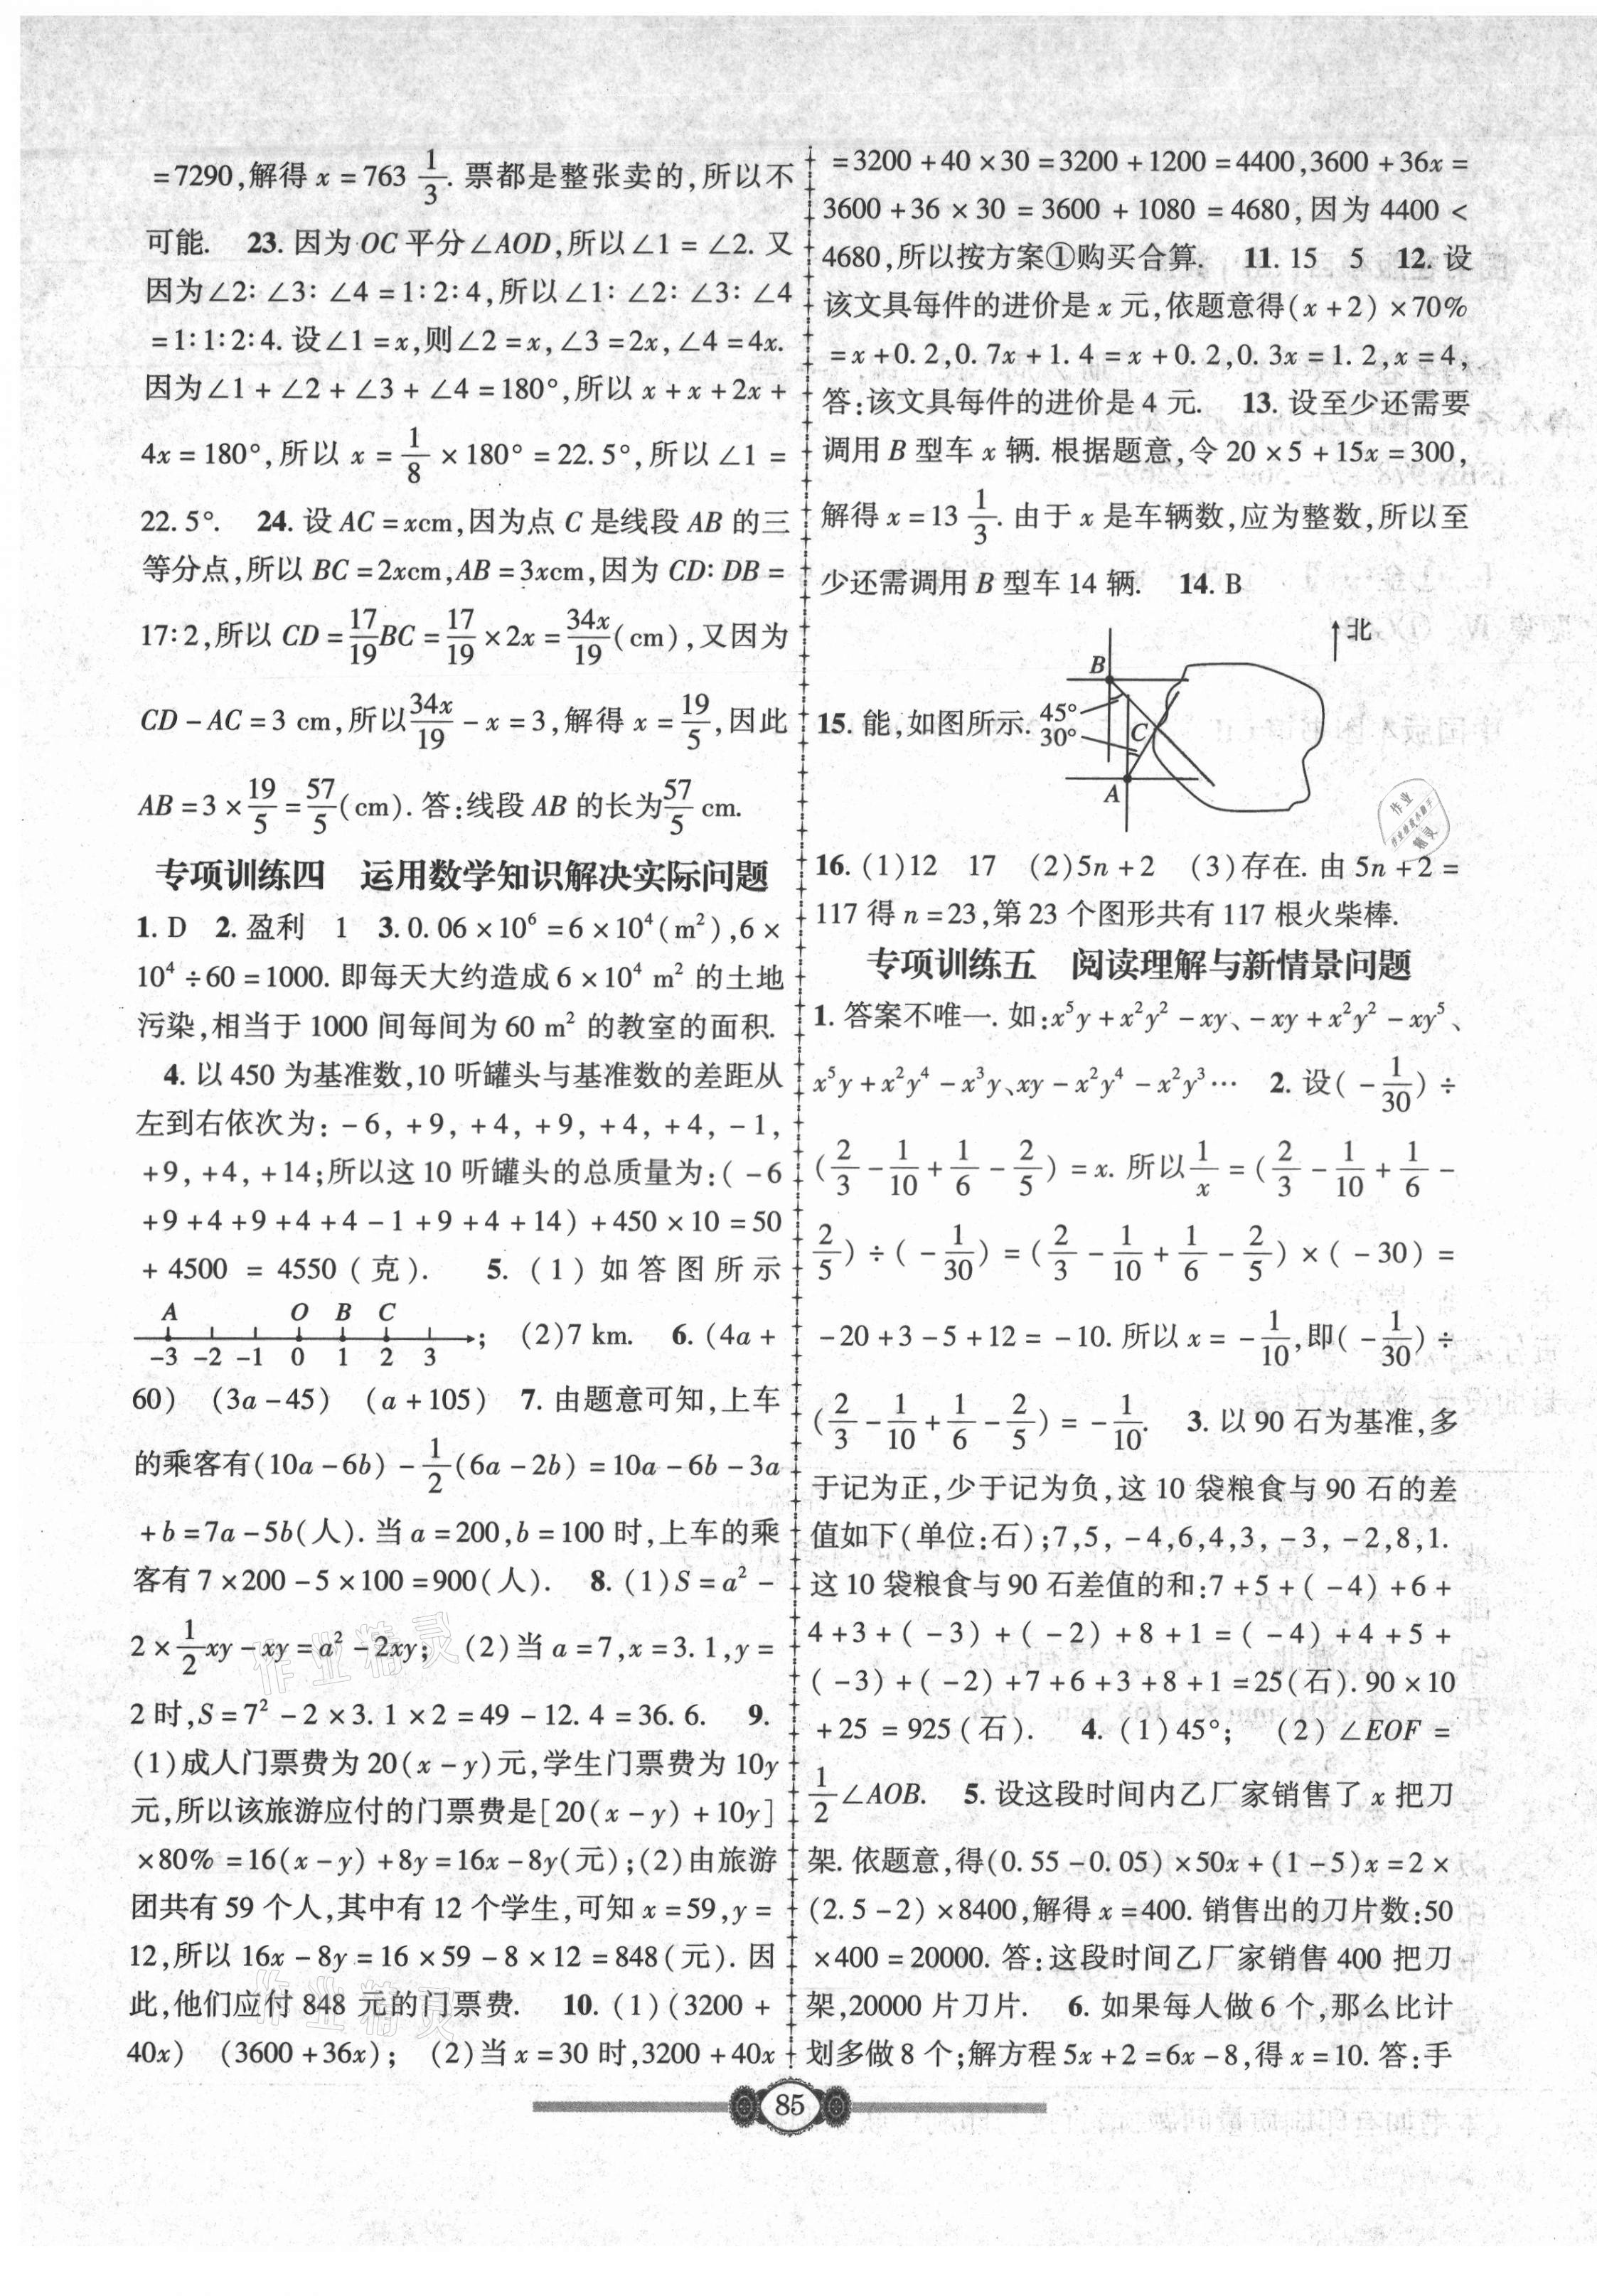 =7290,解得 x=763 1/3. 票都是整张卖的,所以不
可能. 23. 因为 OC 平分∠AOD,所以∠1=∠2. 又
因为∠2:∠3:∠4=1:2:4,所以∠1:∠2:∠3:∠4
=1:1:2:4. 设∠1=x,则∠2=x,∠3=2x,∠4=4x.
因为∠1+∠2+∠3+∠4=180°,所以 x+x+2x+
4x=180°,所以 x=1/8×180°=22.5°,所以∠1=
22.5°. 24. 设 AC=xcm,因为点 C 是线段 AB 的三
等分点,所以 BC=2xcm,AB=3xcm,因为 CD:DB=
17:2,所以 CD=17/19BC=17/19×2x=34x/19(cm),又因为
CD-AC=3 cm,所以34x/19-x=3,解得 x=19/5,因此
AB=3×19/5=57/5(cm). 答:线段 AB 的长为57/5 cm.
专项训练四 运用数学知识解决实际问题
1. D 2. 盈利 1 3. 0.06×10⁶=6×10⁴(m²),6×
10⁴÷60=1000. 即每天大约造成 6×10⁴ m² 的土地
污染,相当于 1000 间每间为 60 m² 的教室的面积.
4. 以 450 为基准数,10 听罐头与基准数的差距从
左到右依次为: -6, +9, +4, +9, +4, +4, -1,
+9, +4, +14;所以这 10 听罐头的总质量为:(-6
+9+4+9+4+4-1+9+4+14)+450×10=50
+4500=4550(克). 5. (1)如答图所示
A O B C
-3 -2 -1 0 1 2 3 ; (2)7 km. 6. (4a+
60) (3a-45) (a+105) 7. 由题意可知,上车
的乘客有(10a-6b)-1/2(6a-2b)=10a-6b-3a
+b=7a-5b(人). 当 a=200,b=100 时,上车的乘
客有 7×200-5×100=900(人). 8. (1)S=a²-
2×1/2xy-xy=a²-2xy; (2)当 a=7,x=3.1,y=
2 时,S=7²-2×3.1×2=49-12.4=36.6. 9.
(1)成人门票费为 20(x-y)元,学生门票费为 10y
元,所以该旅游应付的门票费是[20(x-y)+10y]
×80%=16(x-y)+8y=16x-8y(元);(2)由旅游
团共有 59 个人,其中有 12 个学生,可知 x=59,y=
12,所以 16x-8y=16×59-8×12=848(元). 因
此,他们应付 848 元的门票费. 10. (1)(3200+
40x) (3600+36x); (2)当 x=30 时,3200+40x
=3200+40×30=3200+1200=4400,3600+36x=
3600+36×30=3600+1080=4680,因为 4400<
4680,所以按方案①购买合算. 11. 15 5 12. 设
该文具每件的进价是 x 元,依题意得(x+2)×70%
=x+0.2,0.7x+1.4=x+0.2,0.3x=1.2,x=4,
答:该文具每件的进价是 4 元. 13. 设至少还需要
调用 B 型车 x 辆. 根据题意,令 20×5+15x=300,
解得 x=13 1/3. 由于 x 是车辆数,应为整数,所以至
少还需调用 B 型车 14 辆. 14. B
北
B
15. 能,如图所示. 45°
30° C
A
16. (1)12 17 (2)5n+2 (3)存在. 由 5n+2=
117 得 n=23,第 23 个图形共有 117 根火柴棒.
专项训练五 阅读理解与新情景问题
1. 答案不唯一. 如:x⁵y+x²y²-xy、-xy+x²y²-xy⁵、
x⁵y+x²y⁴-x³y、xy-x²y⁴-x²y³… 2. 设(-1/30)÷
(2/3-1/10+1/6-2/5)=x. 所以1/x=(2/3-1/10+1/6-
2/5)÷(-1/30)=(2/3-1/10+1/6-2/5)×(-30)=
-20+3-5+12=-10. 所以 x=-1/10,即(-1/30)÷
(2/3-1/10+1/6-2/5)=-1/10. 3. 以 90 石为基准,多
于记为正,少于记为负,这 10 袋粮食与 90 石的差
值如下(单位:石);7,5,-4,6,4,3,-3,-2,8,1.
这 10 袋粮食与 90 石差值的和:7+5+(-4)+6+
4+3+(-3)+(-2)+8+1=(-4)+4+5+
(-3)+(-2)+7+6+3+8+1=25(石). 90×10
+25=925(石). 4. (1)45°; (2)∠EOF=
1/2∠AOB. 5. 设这段时间内乙厂家销售了 x 把刀
架. 依题意,得(0.55-0.05)×50x+(1-5)x=2×
(2.5-2)×8400,解得 x=400. 销售出的刀片数:50
×400=20000. 答:这段时间乙厂家销售 400 把刀
架,20000 片刀片. 6. 如果每人做 6 个,那么比计
划多做 8 个;解方程 5x+2=6x-8,得 x=10. 答:手
85
作业精灵
作业精灵
作业
精灵